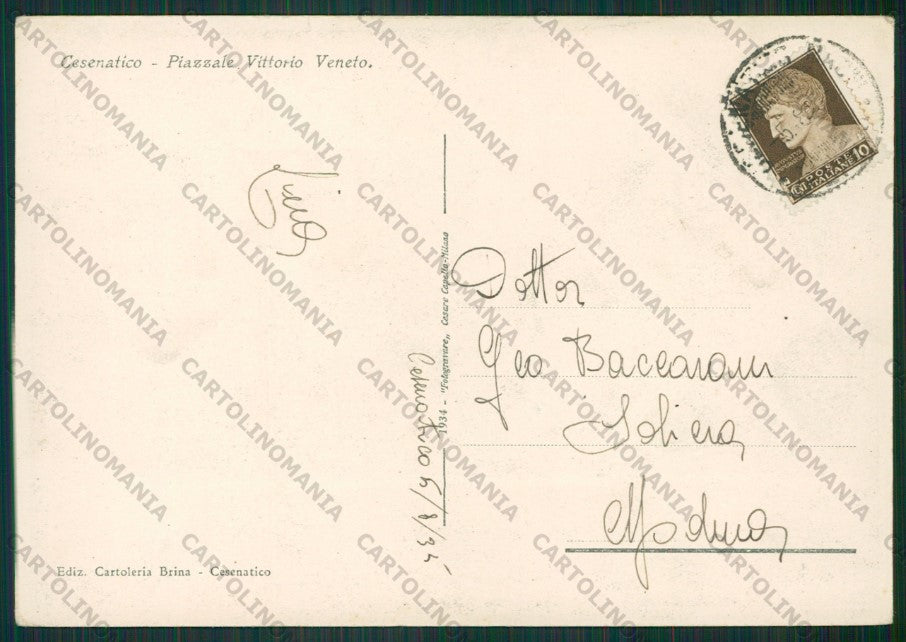 Cesenatico - Piazzale Vittorio Veneto.
POSTE
ITALIANE
10
1934 - "Fotogravure„ Cesare Capello-Milano
Cesenatico 5/8/35
Dottor
Geo Baccarani
Soliera
Modena
Ediz. Cartoleria Brina - Cesenatico
CARTOLINOMANIA